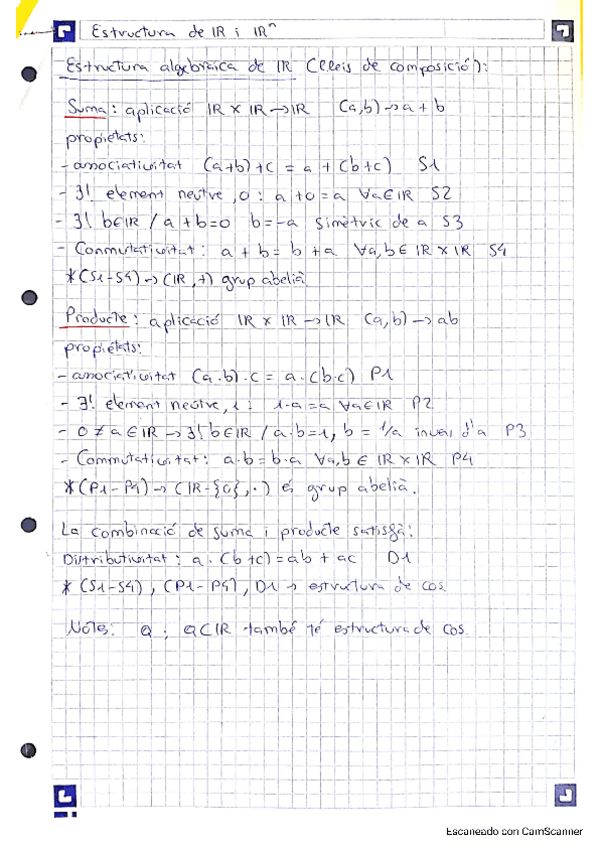 Estructura de IR i IRⁿ
Estructura algebraica de IR (lleis de composició):
Suma: aplicació IR x IR → IR (a,b) → a + b
propietats:
- associativitat (a+b)+c = a + (b+c) S1
- ∃! element neutre, 0 : a + 0 = a ∀a∈IR S2
- ∃! b∈IR / a + b = 0 b = -a simètric de a S3
- Conmutativitat: a + b = b + a ∀a,b ∈ IR x IR S4
*(S1-S4) → (IR, +) grup abelià
Producte: aplicació IR x IR → IR (a,b) → ab
propietats:
- associativitat (a·b)·c = a·(b·c) P1
- ∃! element neutre, 1 : 1·a = a ∀a∈IR P2
- 0 ≠ a ∈ IR → ∃! b∈IR / a·b=1, b = 1/a invers d'a P3
- Commutativitat: a·b = b·a ∀a,b ∈ IR x IR P4
*(P1-P4) → (IR-{0}, ·) és grup abelià.
La combinació de suma i producte satisfà:
Distributivitat: a·(b+c) = ab + ac D1
* (S1-S4), (P1-P4), D1 → estructura de cos.
Notes: Q ; Q⊂IR també té estructura de cos.
Escaneado con CamScanner